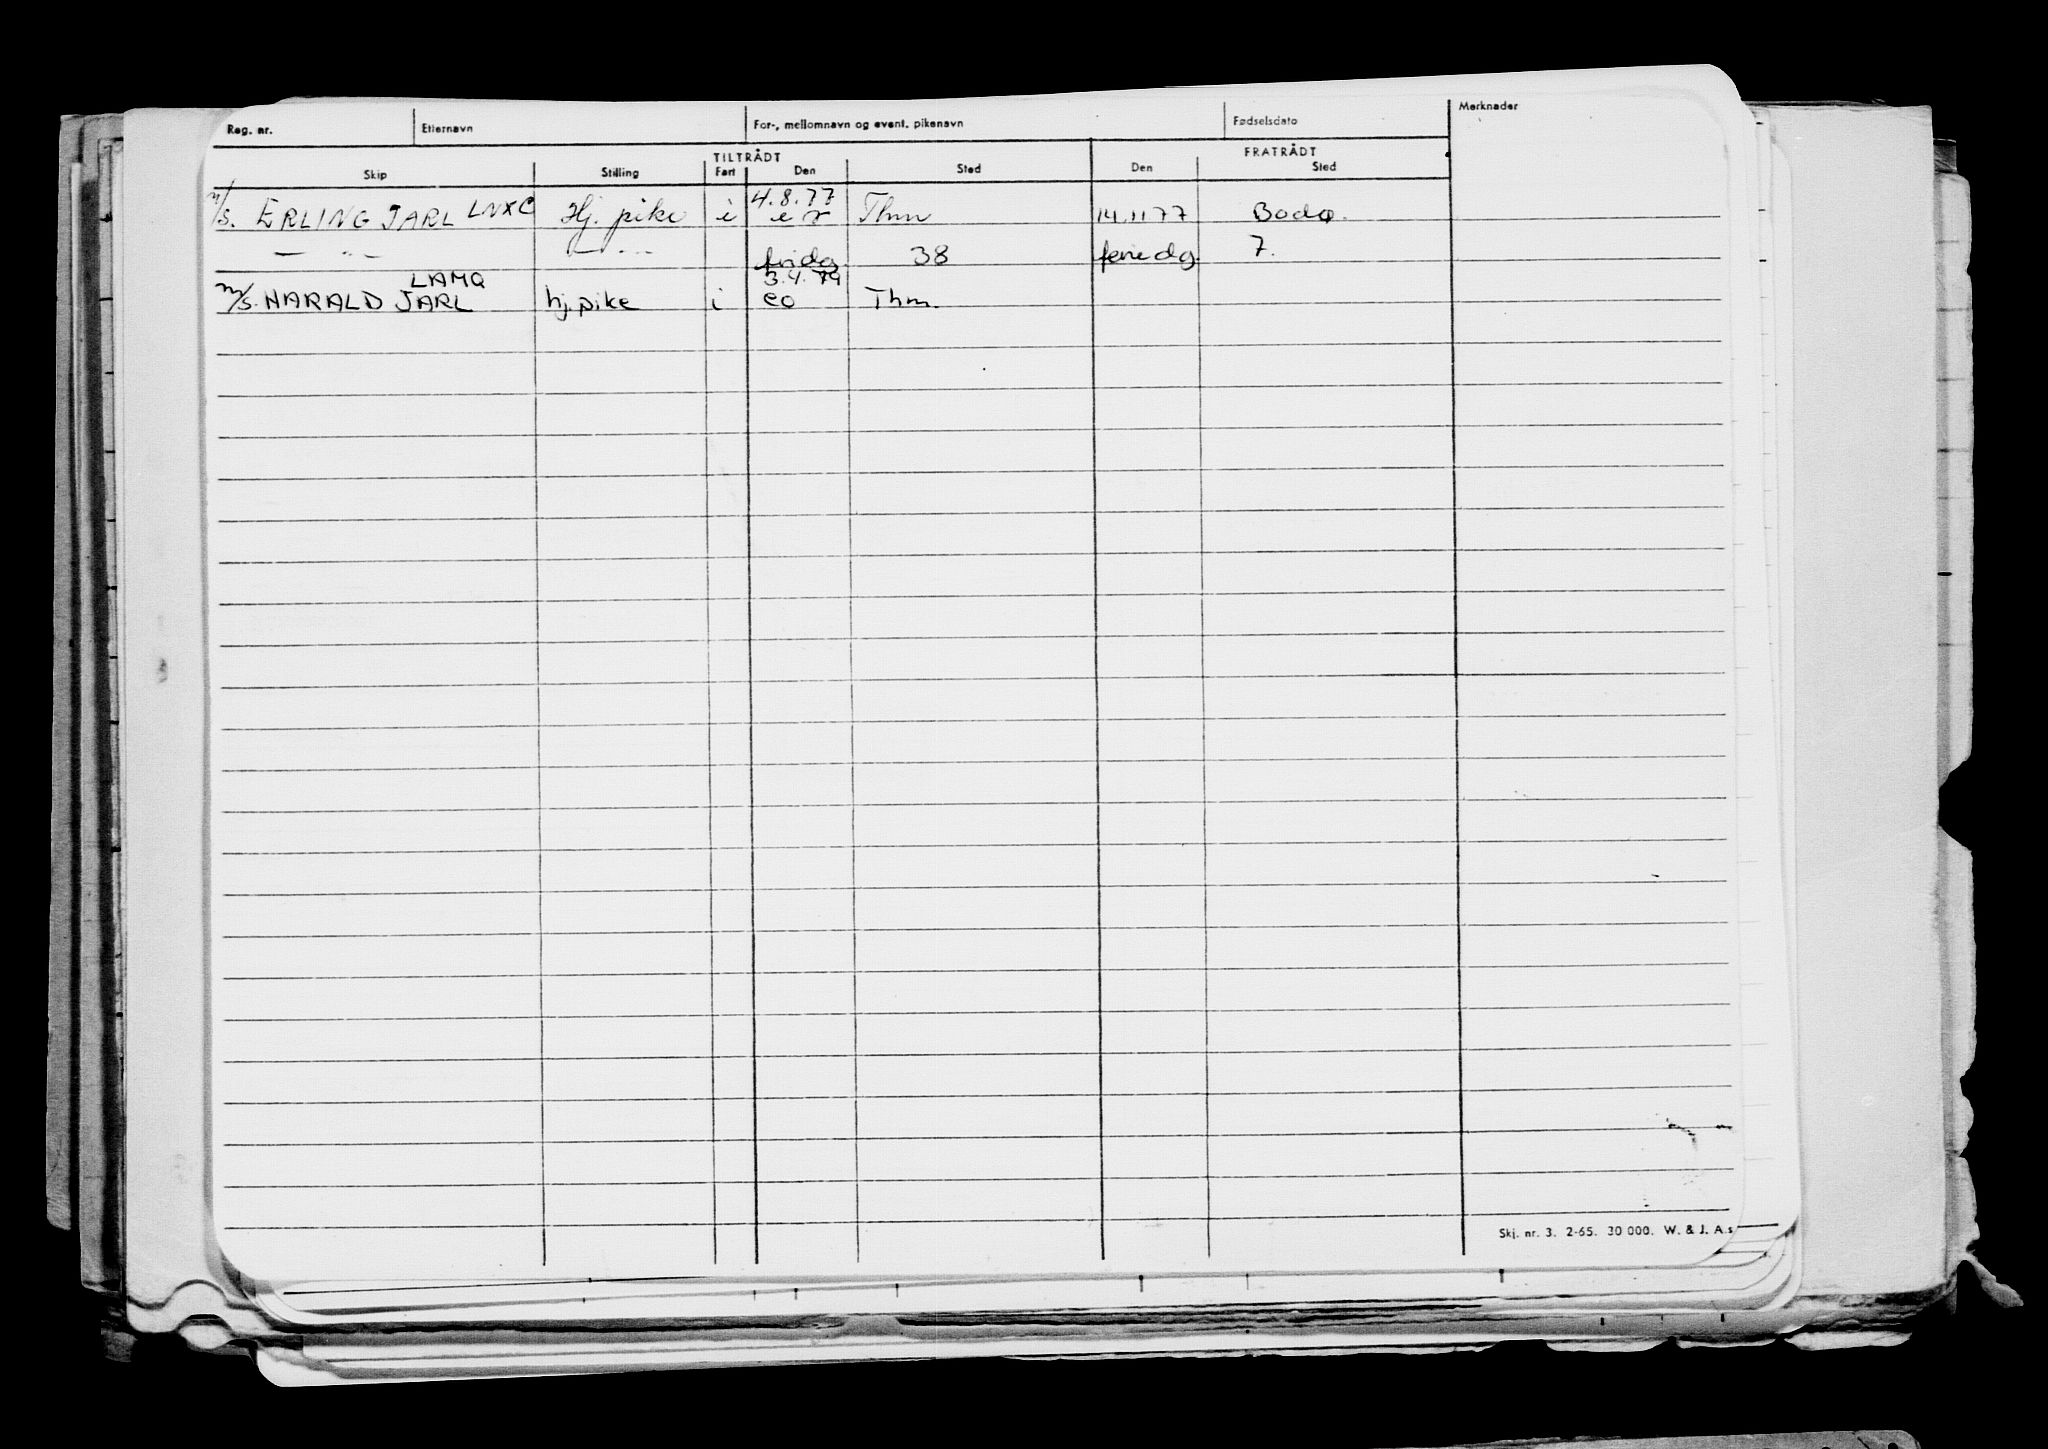 Reg. nr. Etternavn For-, mellomnavn og event. pikenavn Fødselsdato Merknader
TILTRÅDT FRATRÅDT
Skip Stilling Fart Den Sted Den Sted
4.8.77
m/s. ERLING JARL LNXC Hj. pike i Thm 14.11 77 Bodø.
— " — — " — fridg 38 feriedg 7.
LAMQ 3.4.79
m/s. HARALD JARL hj. pike i eo Thm.
Skj. nr. 3. 2-65. 30 000. W. & J. A.s